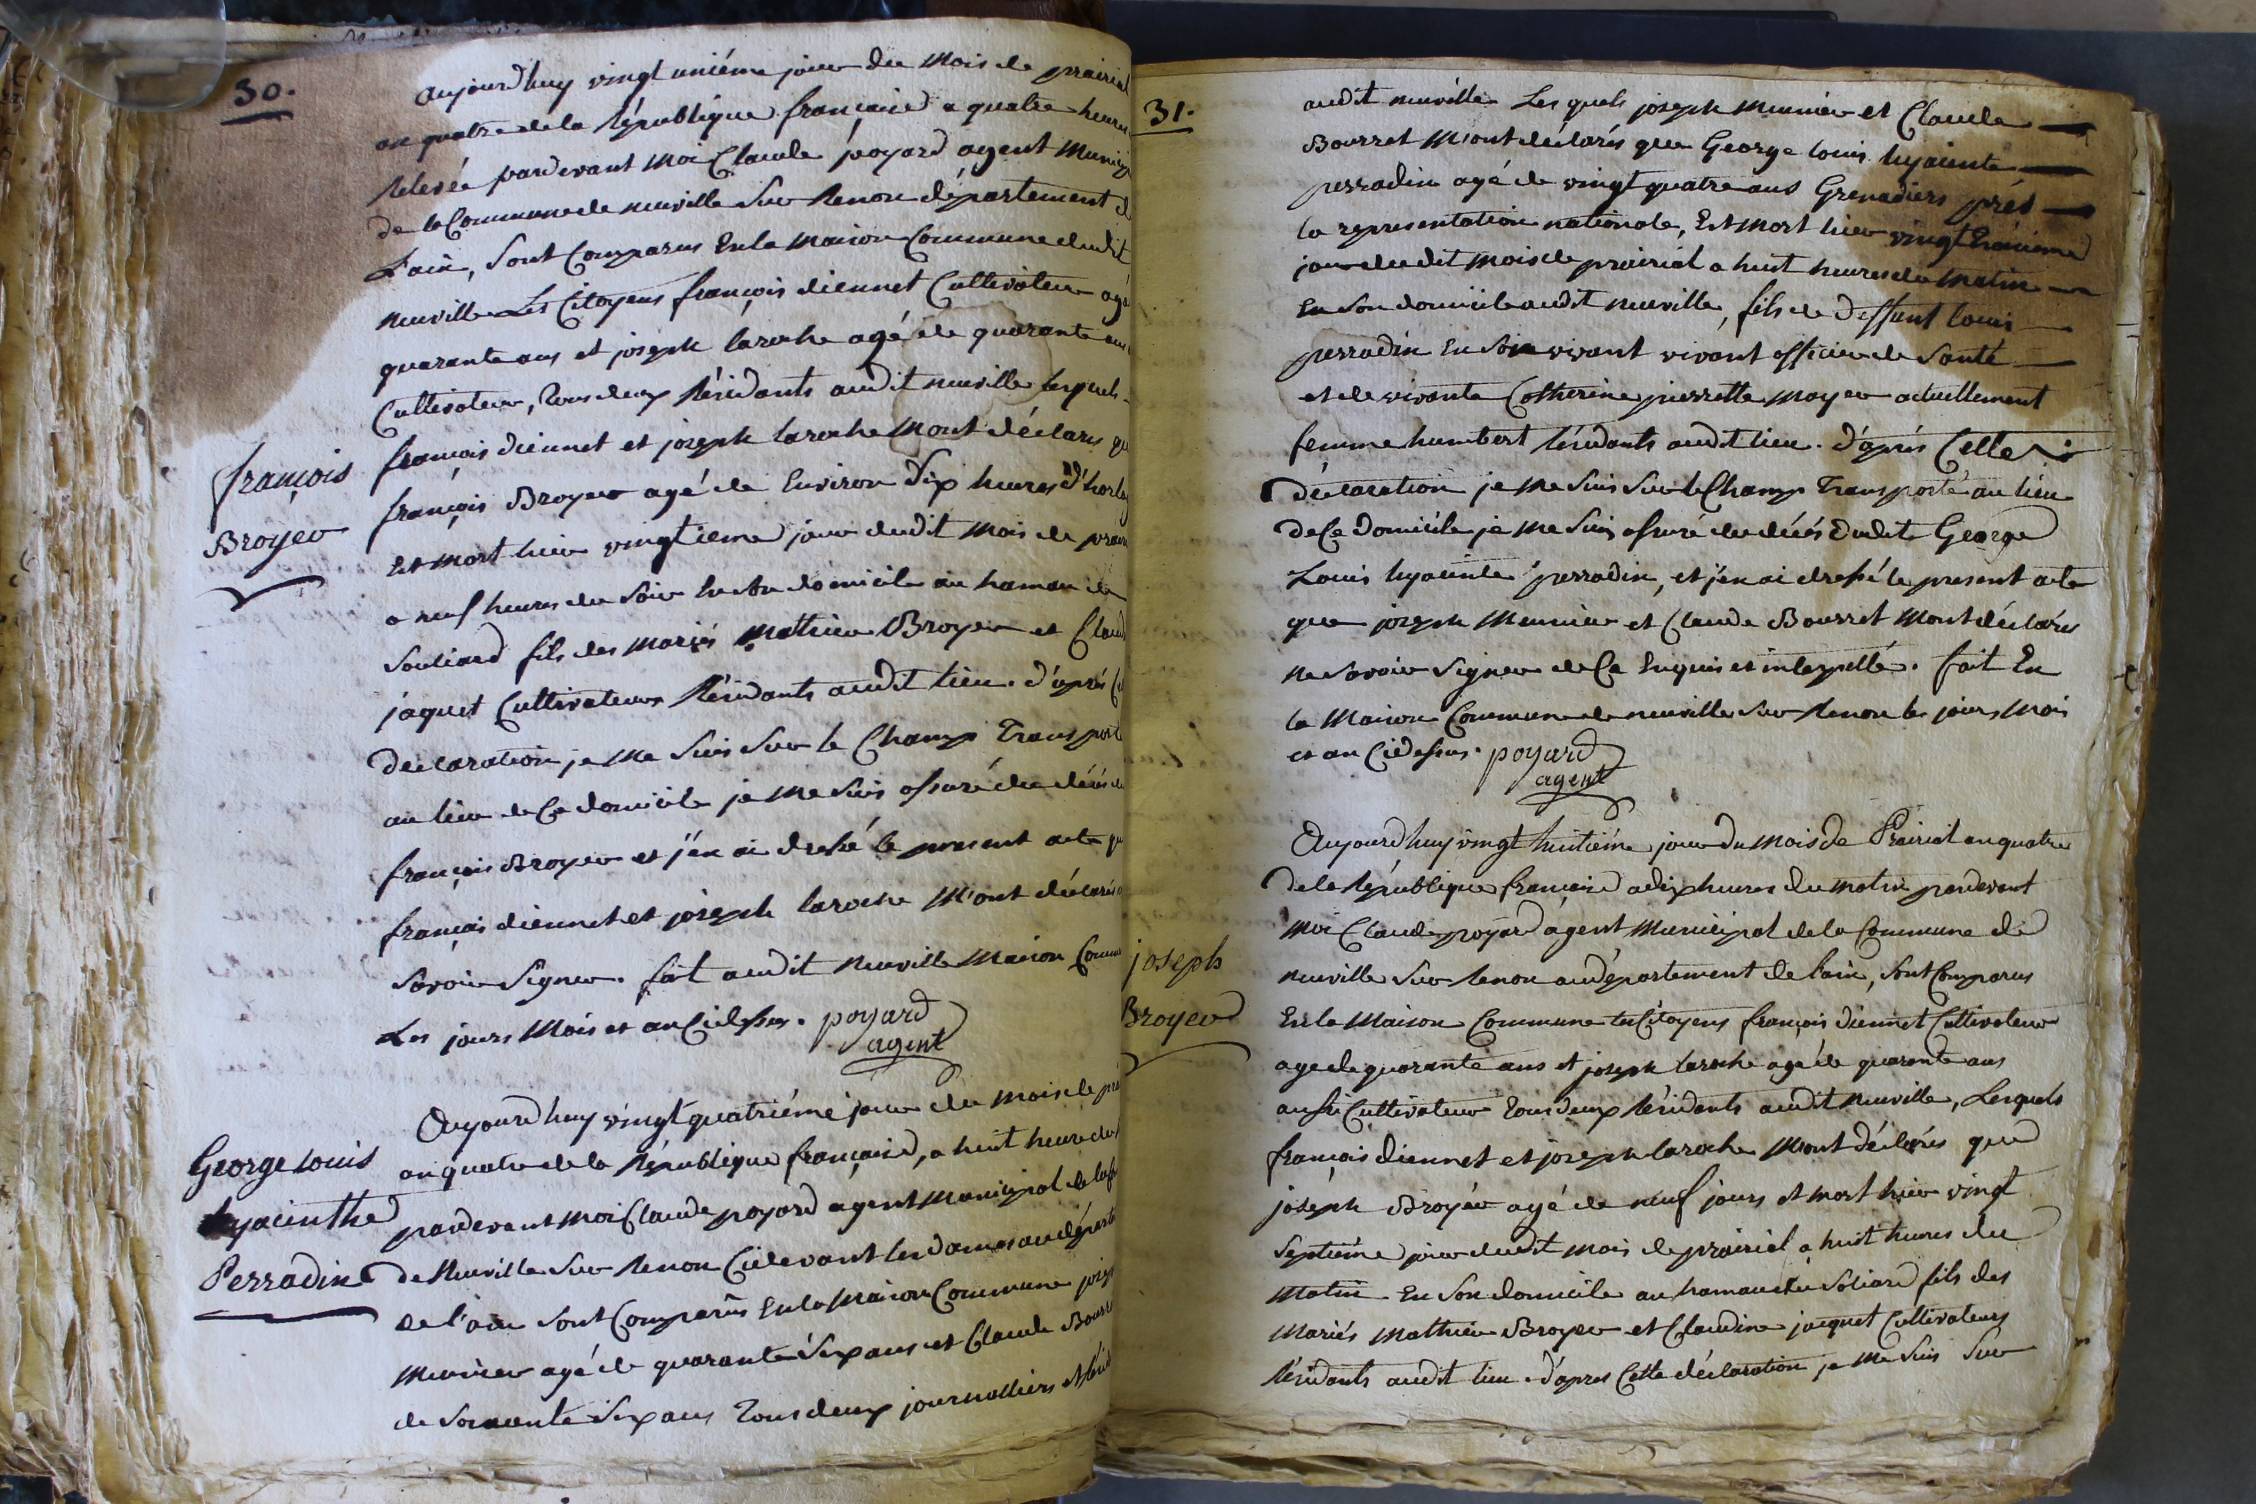 30.
aujourd'huy vingt uniéme jour du mois de prairial
an quatre de la République française a quatre heures
Relevée pardevant moi Claude poyard agent Munici
de la Commune de neuville Sur Renon département d
L'ain, Sont Comparus En la maison Commune dudit
neuville Les Citoyens françois diennet Cultivateur agé
quarante ans et joseph laroche agé de quarante ans
Cultivateur, Tous deux Résidants audit neuville lesquels
françois diennet et joseph laroche Mont déclarés que
françois
Broyer
françois Broyer agé de Environ dix heures d'horlog
Est mort hier vingtieme jour dudit mois de prairi
a neuf heures du Soir En Son domicile au hamau de
Souliard fils des mariés mathieu Broyer et Claud
jaquet Cultivateurs Résidants audit lieu. d'après Ce
declaration je me Suis Sur le Champ Transporté
au lieu de Ce domicile je me Suis assuré du décés du
françois Broyer et j'en ai dressé le present acte que
françois diennet et joseph laroche M'ont déclarés
Savoir Signer. fait audit neuville Maison Commu
Les jours Mois et an Cidessus. poyard
agent
George Louis
hyacinthe
Perradin
Aujourd'huy vingt quatriéme jour du mois de prai
an quatre de la République française, a huit heure du
pardevant moi Claude poyard agent municipal de la
de Neuville Sur Renon Cidevant les dames au départe
de l'ain Sont Comparus En la Maison Commune jose
Meunier agé de quarante Six ans et Claude Bourr
de Soixante Six ans Tous deux journalliers et Rési
31.
audit neuville Les quels joseph Meunier et Claude
Bourret M'ont déclarés que George Louis hyacinte
perradin agé de vingt quatre ans Grenadiers prés
la representation nationale, Est mort hier vingt troisieme
jour du dit mois de prairial a huit heures du matin
En Son domicile audit neuville, fils de deffunt Louis
perradin En Son vivant vivant officier de Santé
et de vivante Catherine pierrette moyer actuellement
femme humbert Résidants audit lieu. d'aprés Cette
déclaration je me Suis Sur le Champ Transporté au lieu
de Ce domicile je me Suis assuré du décés dudit George
Louis hyacinte perradin, et j'en ai dressé le present acte
que joseph Meunier et Claude Bourret Mont déclarés
ne Savoir Signer de Ce Enquis et interpellé. fait En
la Maison Commune de neuville Sur Renon les jours, mois
et an Cidessus. poyard
agent
joseph
Broyer
Aujourd'huy vingt huitiéme jour du mois de Prairial an quatre
de la République française a dix heures du matin pardevant
Moi Claude poyard agent Municipal de la Commune de
neuville Sur Renon au département de l'ain, Sont Comparus
En la Maison Commune les Citoyens françois diennet Cultivateur
age de quarante ans et joseph laroche agé de quarante ans
aussi Cultivateur Tous deux Résidents audit neuville, Lesquels
françois diennet et joseph laroche Mont déclarés que
joseph Broyer agé de neuf jours et mort hier vingt
Septiéme jour dudit mois de prairial a huit heures du
Matin En Son domicile au hamau du Soliard fils des
Mariés Mathieu Broyer et Claudine jacquet Cultivateurs
Résidants audit lieu. d'apres Cette déclaration je me Suis Sur